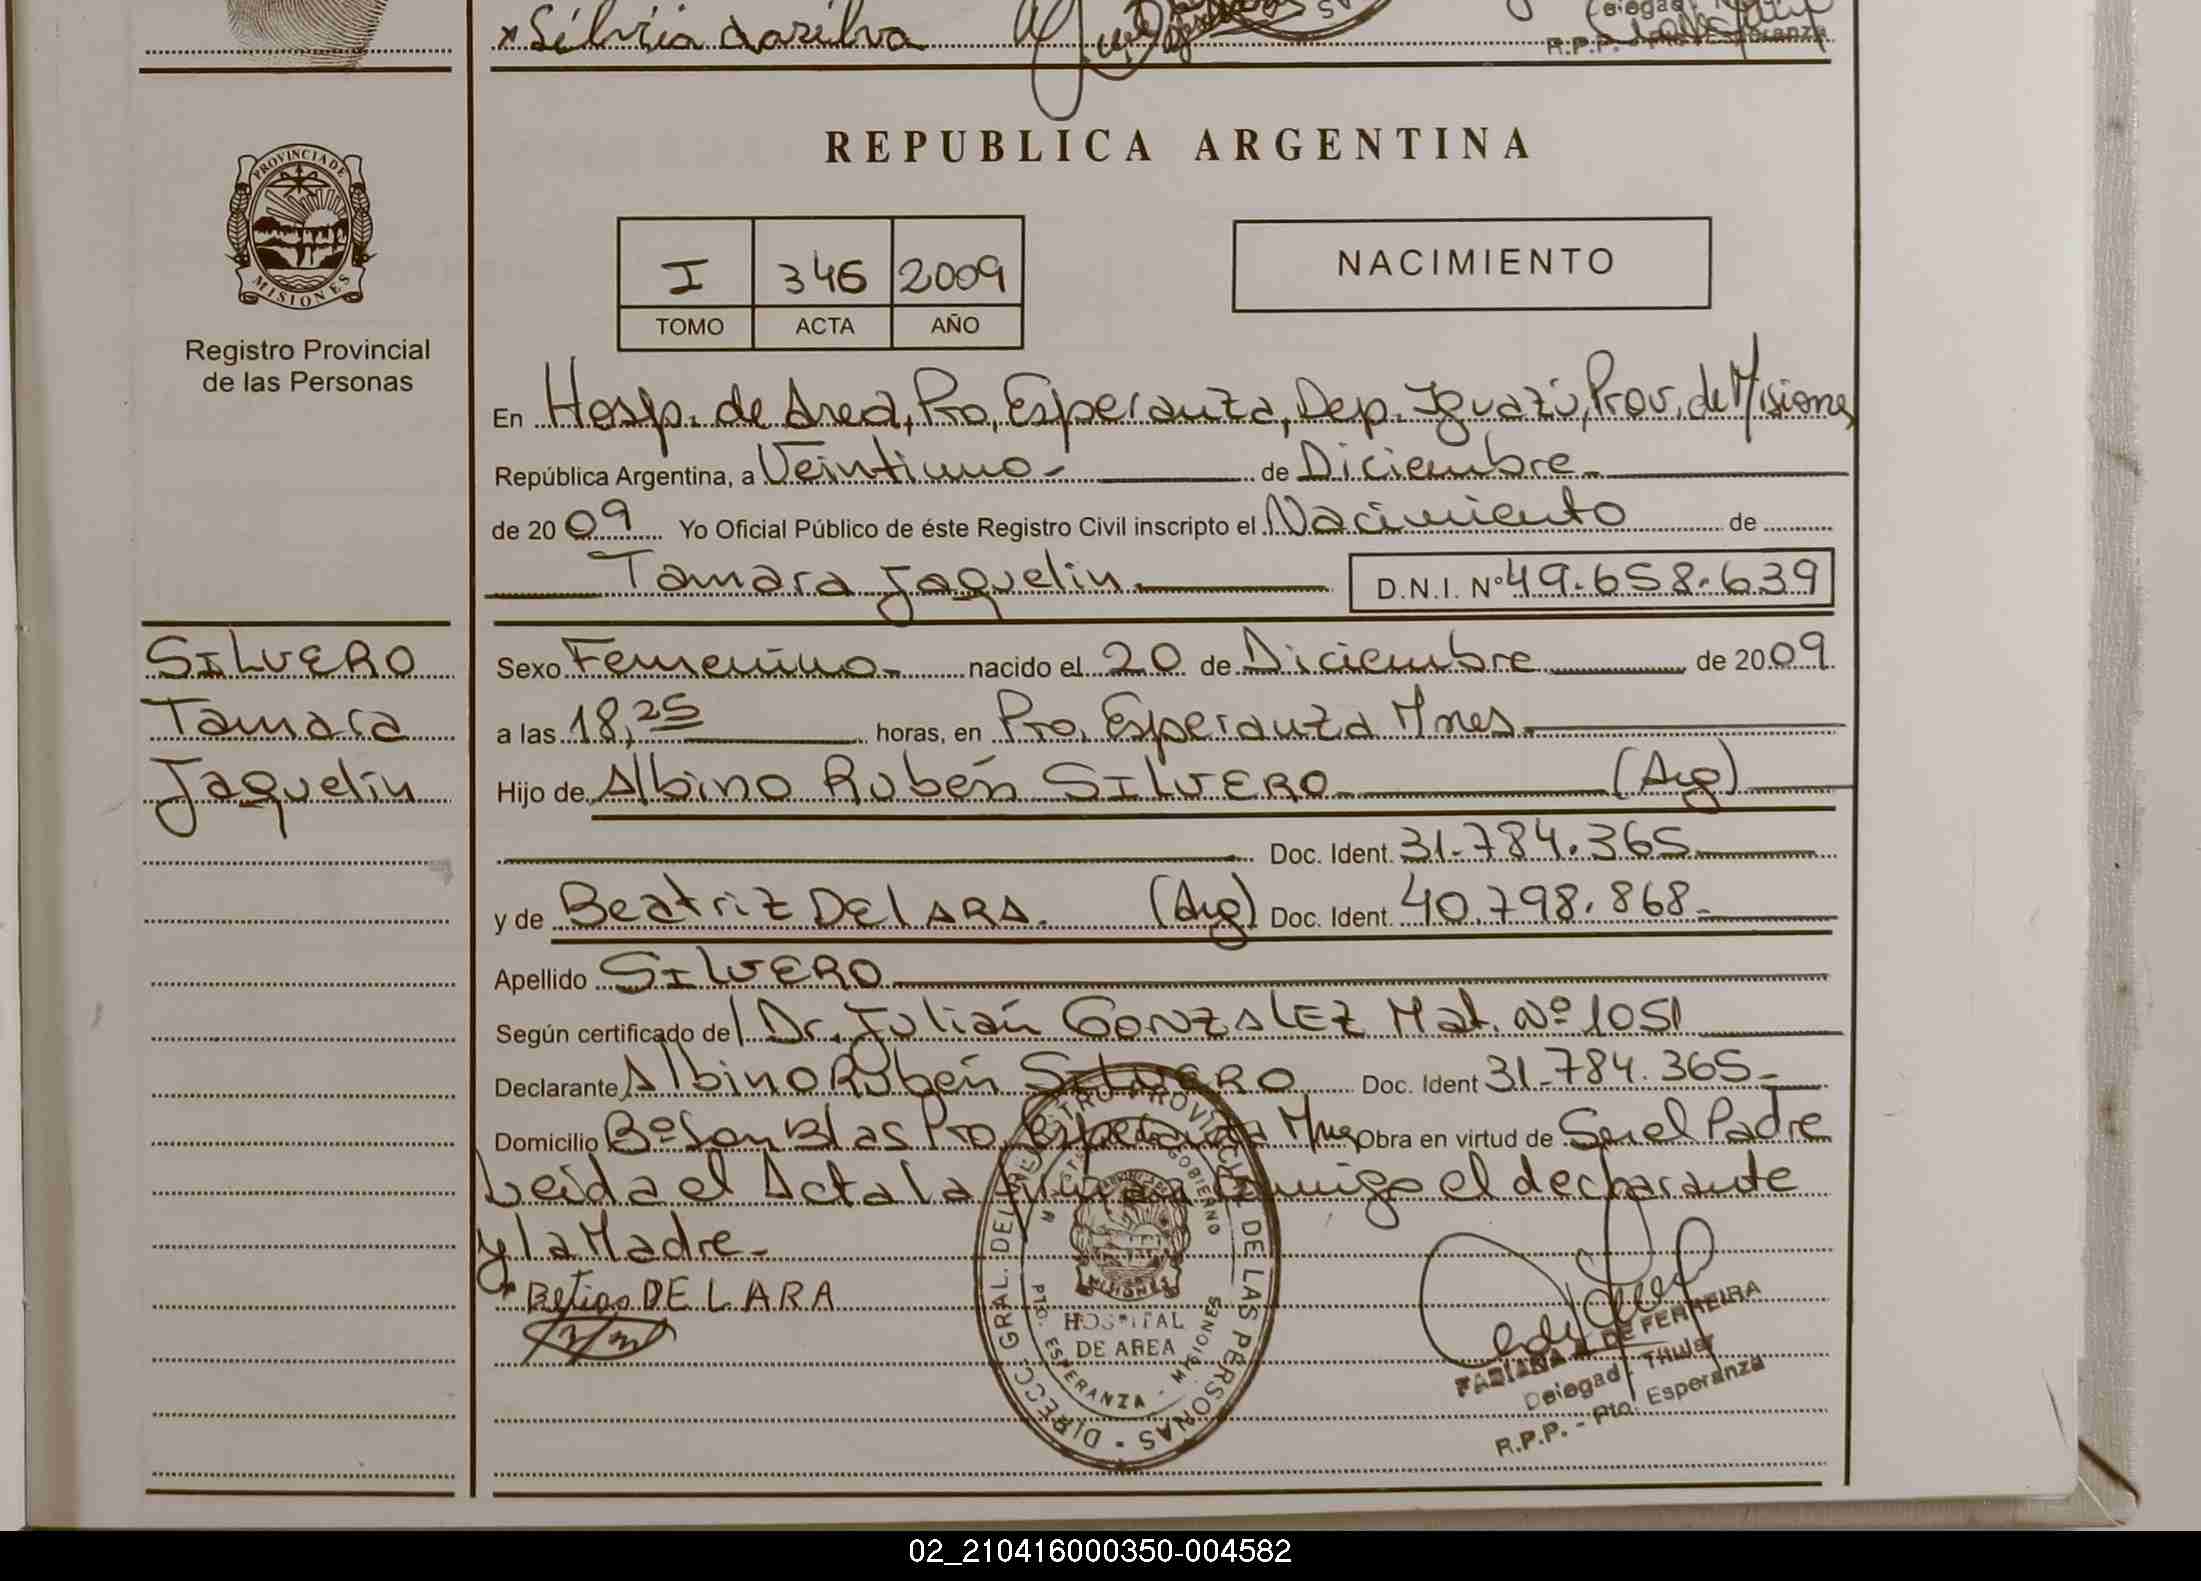 x Silvia dasilva
R.P.P. - Pto. Esperanza
REPUBLICA ARGENTINA
PROVINCIA DE
MISIONES
Registro Provincial
de las Personas
I 346 2009
TOMO ACTA AÑO
NACIMIENTO
En Hosp. de Area, Pto, Esperanza, Dep. Iguazú, Prov. de Misiones
República Argentina, a Veintiuno- de Diciembre-
de 2009 Yo Oficial Público de éste Registro Civil inscripto el Nacimiento de
Tamara Jaquelin D.N.I. Nº 49.658.639
SILVERO
Tamara
Jaquelin
Sexo Femenino- nacido el 20 de Diciembre de 2009
a las 18,25 horas, en Pto. Esperanza Mnes.
Hijo de Albino Rubén SILVERO (Arg)
Doc. Ident. 31.784.365
y de Beatriz DE LARA. (Arg) Doc. Ident. 40.798.868-
Apellido SILVERO
Según certificado del Dr. Julián GONZALEZ Mat. Nº 1051
Declarante Albino Rubén SILVERO Doc. Ident 31-784.365-
Domicilio Bº San Blas Pto, Esperanza Mnes Obra en virtud de Ser el Padre
Leída el Acta la firman conmigo el declarante
y la Madre-
DE LARA
DIRECC. GRAL. DEL REGISTRO PROVINCIAL DE LAS PERSONAS
MISIONES
HOSPITAL
DE AREA
PTO. ESPERANZA - MISIONES
FABIANA DE FERREIRA
Delegad Titular
R.P.P. - Pto. Esperanza
02_210416000350-004582